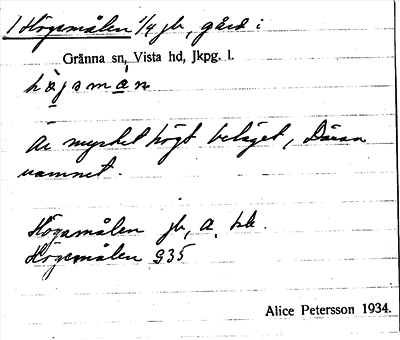 1 Högsmålen 1/4 jb, gård i
Gränna sn, Vista hd, Jkpg. l.
Är mycket högt beläget, Därav
namnet.
Högsmålen jb, a, hk.
Högsmålen G35
Alice Petersson 1934.